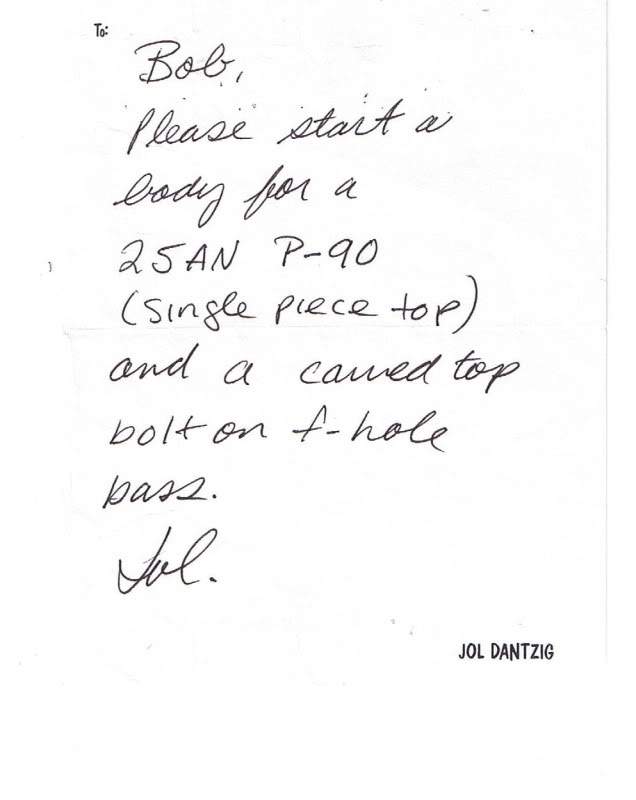 To:
Bob,
Please start a
body for a
25AN P-90
(single piece top)
and a carved top
bolt on f-hole
bass.
Jol.
JOL DANTZIG